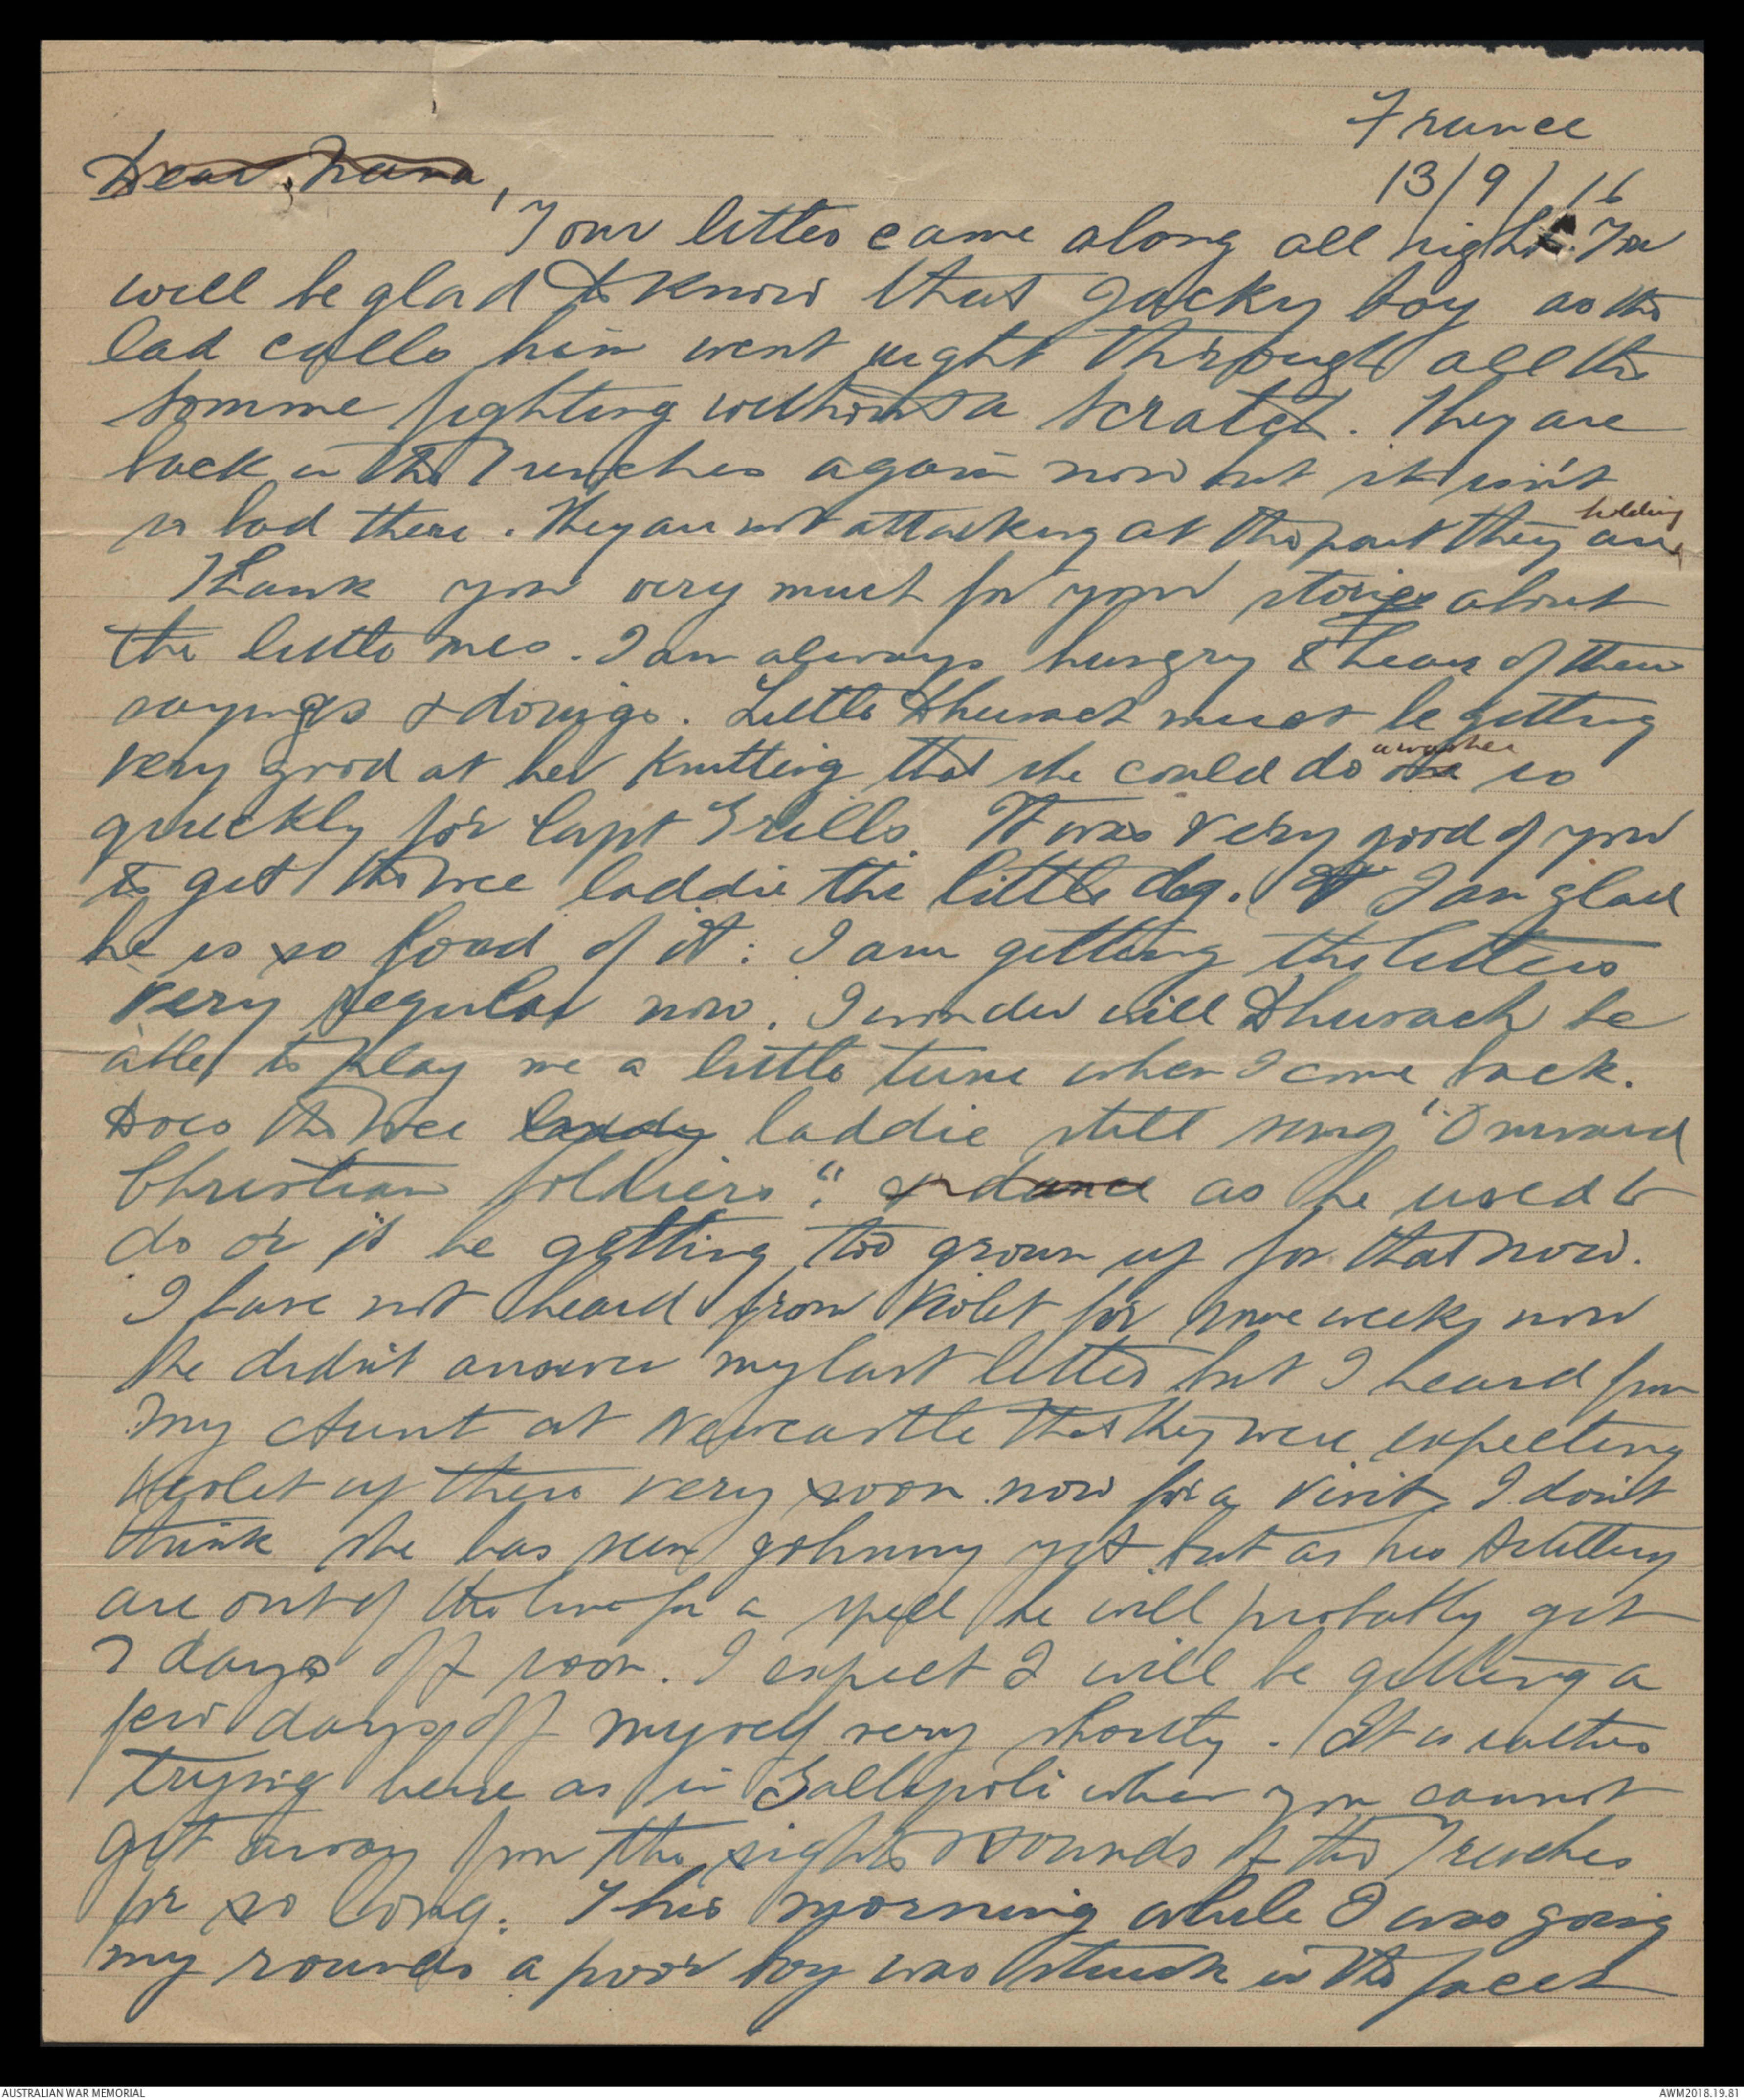 France
13/9/16
Dear Nana,
Your letter came along all right. You
will be glad to know that Jacky boy as the
lad calls him went right through all the
Somme fighting without a scratch. They are
back in the Trenches again now but it isn't
so bad there. They are not attacking at the part they are holding
Thank you very much for your stories about
the little ones. I am always hungry to hear of their
sayings & doings. Little Dhurach must be getting
very good at her Knitting that she could do one a washer so
quickly for Capt Grills. It was very good of you
to get the wee laddie the little dog. I am glad
he is so fond of it: I am getting the letters
very regular now. I wonder will Dhurach be
able to play me a little tune when I come back.
Does the wee laddy laddie still sing "Onward
Christian Soldiers". & dance as he used to
do or is he getting too grown up for that now.
I have not heard from Violet for some weeks now
she didn't answer my last letter but I heard from
my Aunt at Newcastle that they were expecting
Violet up there very soon now for a visit. I don't
think she has seen Johnny yet but as his Artillery
are out of the line for a spell he will probably get
7 days off soon. I expect I will be getting a
few days off myself very shortly. It is rather
trying here as in Gallipoli when you cannot
get away from the sights & sounds of the Trenches
for so long. This morning while I was going
my rounds a poor boy was struck in the face
AUSTRALIAN WAR MEMORIAL
AWM2018.19.81